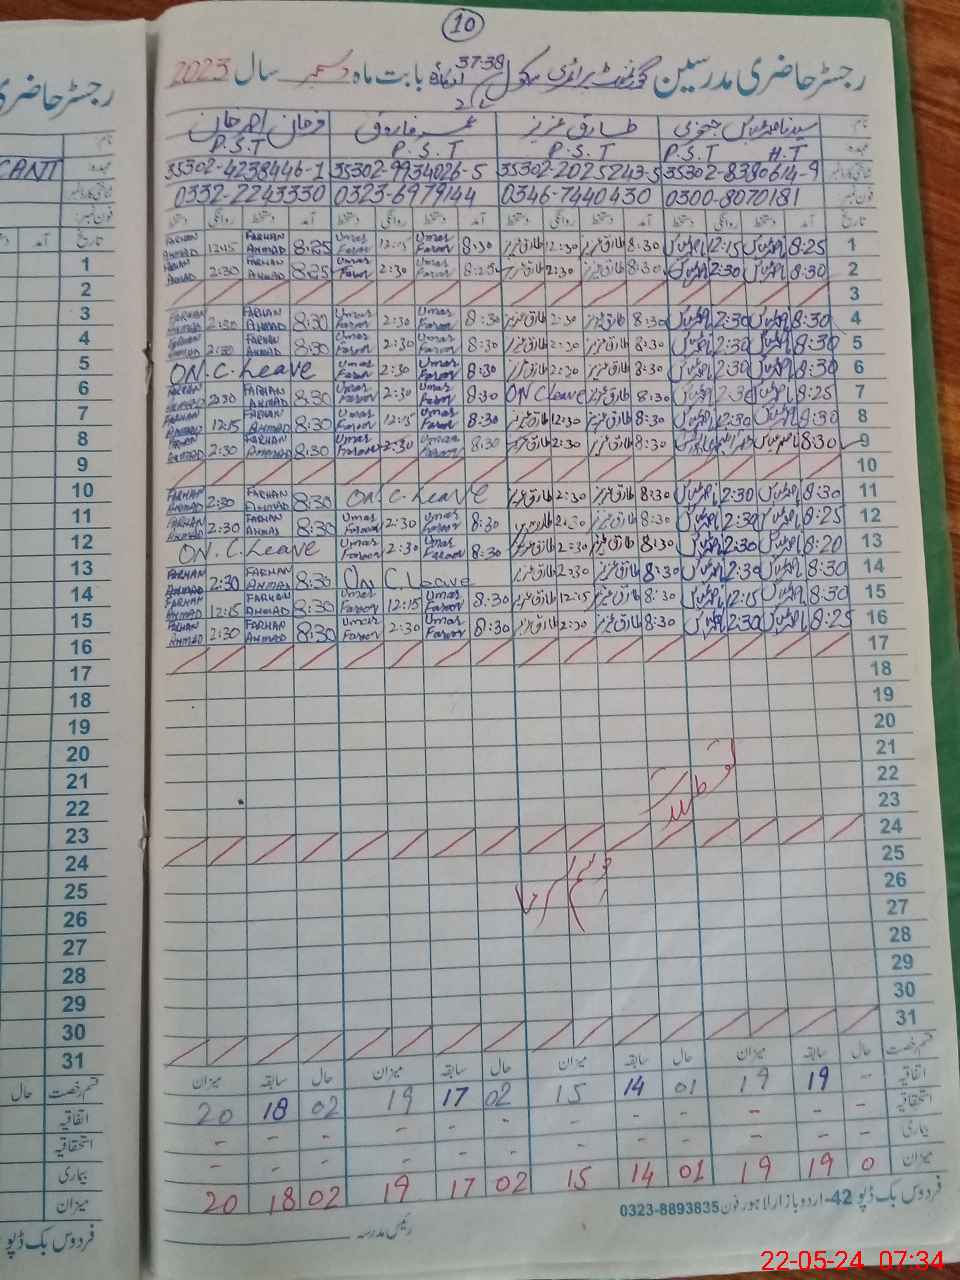 10
رجسٹر حاضری مدرسین گورنمنٹ پرائمری سکول 37-38 بابت ماہ دسمبر سال 2023
2/L
نام طارق عزیز عمر فاروق فرحان احمد خان
عہدہ H.T P.S.T P.S.T P.S.T P.S.T
35302-8390614-9 35302-2025243-5 35302-9934026-5 35302-4238446-1
فون نمبر 0300-8070181 0346-7440430 0323-6979144 0332-2243330
تاریخ آمد دستخط روانگی دستخط آمد دستخط روانگی دستخط آمد دستخط روانگی دستخط آمد دستخط روانگی دستخط
1 8:25 12:15 8:30 طارق عزیز 12:30 طارق عزیز 8:30 Umar Farooq 12:15 Umar Farooq 8:25 FARHAN AHMAD 12:15 FARHAN AHMAD
2 8:30 2:30 8:30 طارق عزیز 2:30 طارق عزیز 8:25 Umar Farooq 2:30 Umar Farooq 8:25 FARHAN AHMAD 2:30 FARHAN AHMAD
3
4 8:30 2:30 8:30 طارق عزیز 2:30 طارق عزیز 8:30 Umar Farooq 2:30 Umar Farooq 8:30 FARHAN AHMAD 2:30 FARHAN AHMAD
5 8:30 2:30 8:30 طارق عزیز 2:30 طارق عزیز 8:30 Umar Farooq 2:30 Umar Farooq 8:30 FARHAN AHMAD 2:30 FARHAN AHMAD
6 8:30 2:30 8:30 طارق عزیز 2:30 طارق عزیز 8:30 Umar Farooq 2:30 Umar Farooq ON.C.Leave
7 8:25 2:30 8:30 طارق عزیز ON C Leave 8:30 Umar Farooq 2:30 Umar Farooq 8:30 FARHAN AHMAD 2:30 FARHAN AHMAD
8 8:30 12:30 8:30 طارق عزیز 12:30 طارق عزیز 8:30 Umar Farooq 12:15 Umar Farooq 8:30 FARHAN AHMAD 12:15 FARHAN AHMAD
9 8:30 8:30 طارق عزیز 2:30 طارق عزیز 8:30 Umar Farooq 2:30 Umar Farooq 8:30 FARHAN AHMAD 2:30 FARHAN AHMAD
10
11 8:30 2:30 8:30 طارق عزیز 2:30 طارق عزیز ON.C.Leave 8:30 FARHAN AHMAD 2:30 FARHAN AHMAD
12 8:25 2:30 8:30 طارق عزیز 2:30 8:30 Umar Farooq 2:30 Umar Farooq 8:30 FARHAN AHMAD 2:30 FARHAN AHMAD
13 8:20 2:30 8:30 طارق عزیز 2:30 طارق عزیز 8:30 Umar Farooq 2:30 Umar Farooq ON.C.Leave
14 8:30 2:30 8:30 طارق عزیز 2:30 طارق عزیز On C Leave 8:30 FARHAN AHMAD 2:30 FARHAN AHMAD
15 8:30 12:15 8:30 طارق عزیز 12:15 طارق عزیز 8:30 Umar Farooq 12:15 Umar Farooq 8:30 FARHAN AHMAD 12:15 FARHAN AHMAD
16 8:25 2:30 8:30 طارق عزیز 2:30 طارق عزیز 8:30 Umar Farooq 2:30 Umar Farooq 8:30 FARHAN AHMAD 2:30 FARHAN AHMAD
17
18
19
20
21
22
23
24
25
26
27
28
29
30
31
قسم رخصت حال سابقہ میزان حال سابقہ میزان حال سابقہ میزان حال سابقہ میزان
اتفاقیہ - 19 19 01 14 15 02 17 19 02 18 20
استحقاقیہ - - - - - - - - - - - -
بیماری - - - - - - - - - - - -
میزان 0 19 19 01 14 15 02 17 19 02 18 20
فردوس بک ڈپو 42-اردو بازار لاہور فون 0323-8893835
رئیس مدرسہ
رجسٹر حاضری
تاریخ آمد
1
2
3
4
5
6
7
8
9
10
11
12
13
14
15
16
17
18
19
20
21
22
23
24
25
26
27
28
29
30
31
قسم رخصت حال
اتفاقیہ
استحقاقیہ
بیماری
میزان
فردوس بک ڈپو
22-05-24 07:34